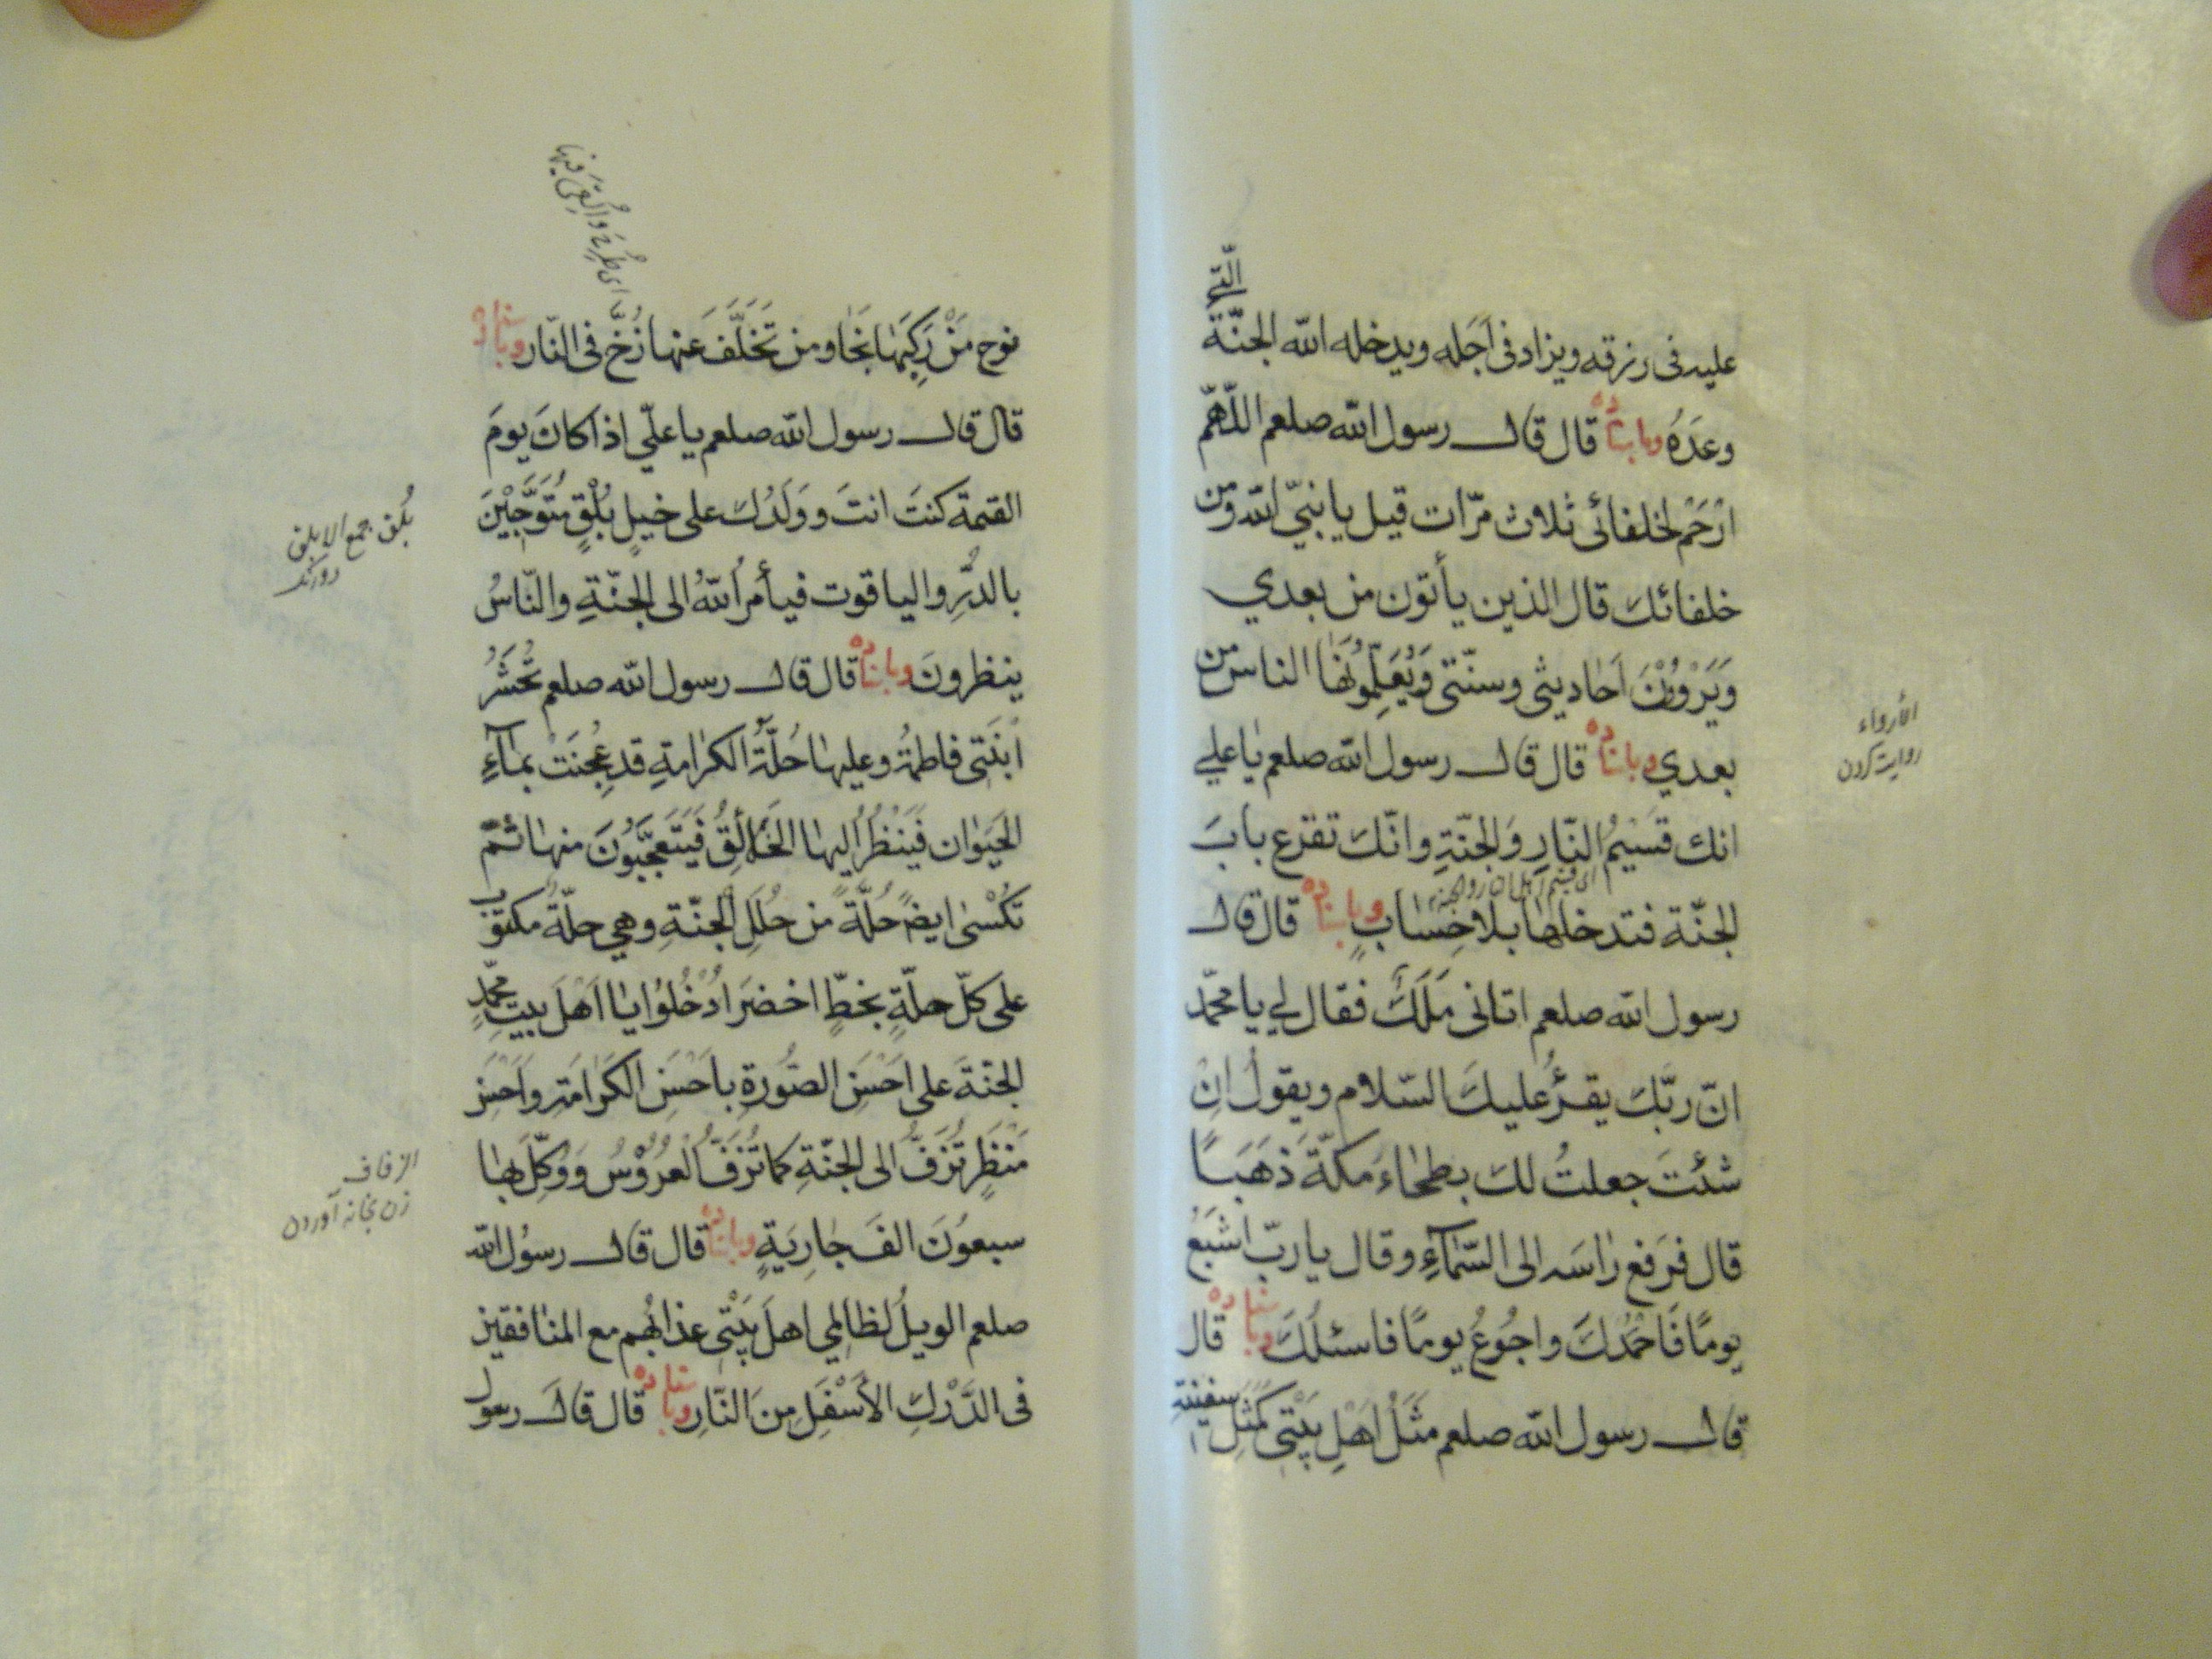 الّتي
عليه فى رزقه ويزاد فى اَجَله ويدخله الله الجنّة
وعدَهُ وباسناده قال قال رسول الله صلعم اللّهمّ
ارْحَمْ لخلفائى ثلاث مرّات قيل يا نبيّ الله ومن
خلفائك قال الذين يأتون من بعدي
وَيَرْوُوْنَ اَحَاديثى وسنّتى وَيُعَلِّمُونَهَا الناس من
بعدي وباسناده قال قال رسول الله صلعم يا علي
انك قَسَيْمُ النّارِ وَالجنّةِ وانّك تقرع بابَ
اى قسيم اهل النار والجنة
الجنّة فتدخلها بلا حِسَابٍ وباسناده قال قال
رسول الله صلعم اتانى مَلَكٌ فقال لي يا محمّد
انّ ربّكَ يقرؤُ عليكَ السّلام ويقولُ اِنْ
شئتَ جعلتُ لك بطحاءَ مكّةَ ذهَبًا
قال فرَفع رٰاسَه الى السّمآءِ وقال يا ربّ اشبَعُ
يومًا فَاحْمَدُكَ واجُوعُ يومًا فاسئلُكَ وباسناده قال
قال رسول الله صلعم مثَلُ اَهْلِ بَيْتى كَمَثَلِ سفينة
الأرواء
روايت كردن
اى طُرِحَ واُلْقِىَ فيها
نوح مَنْ رَكِبَهَا نَجَا ومن تَخَلَّفَ عَنها زُخَّ فى النّار وباسناده
قال قال رسول الله صلعم يا عليّ اذا كانَ يومَ
القيمة كنتَ انتَ ووَلَدُك على خيلٍ بُلْقٍ مُتَوَّجَيْنَ
بالدُّرِّ والياقوت فيأمرُ اللهُ الى الجنّةِ والنّاسُ
ينظرونَ وباسناده قال قال رسول الله صلعم تُحْشَرُ
ابْنَتى فاطمةُ وعليها حُلّةُ الكرٰامةِ قد عُجِنَتْ بمآءِ
الحَيَوٰان فَيَنْظُرُ اليها الخَلٰائِقُ فَيَتَعَجَّبُونَ منها ثمّ
تكْسٰى ايضً حُلّةً من حُلَلِ الجنّةِ وهي حلّةٌ مكتوب
على كلّ حلّةٍ بخطٍّ اخضرَ ادْخُلُوا يا اَهْلَ بيت محمّدٍ
الجنّةَ على احَسَنِ الصّورَةِ باَحْسَنِ الكَرٰامَةِ واَحْسَنِ
مَنْظَرٍ تُزَفُّ الى الجنّةِ كما تُزَفُّ العرُوْسُ وَوُكِّلَ بهٰا
سبعوُنَ الفَ جٰارِيَةٍ وباسناده قال قال رسوُل الله
صلعم الويلُ لظالمي اهلَ بَيْتى عذابُهم مع المنٰافقين
فى الدَّرْكِ الأَسْفَلِ مِنَ النّارِ وباسناده قال قال رسول
بُلق جمع الابلق
دورنگ
الزفاف
زن بخانه آوردن